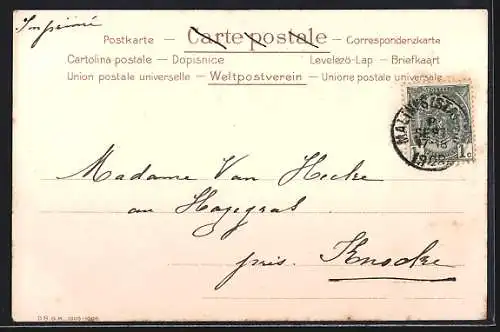 Imprimé
Postkarte — Carte postale — Correspondenzkarte
Cartolina postale — Dopisnice Levelező-Lap — Briefkaart
Union postale universelle — Weltpostverein — Unione postale universale
1908
Madame Van Hecke
au Hazegras
près Knocke